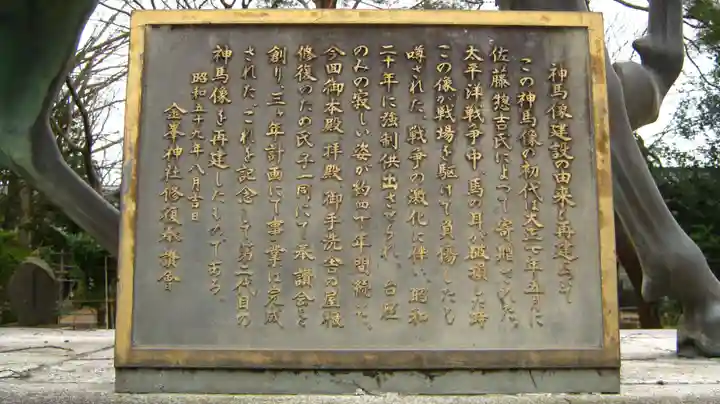 神馬像建設の由来と再建立て
この神馬像の初代は大正十年五月に
佐藤惣吉氏によって寄進された。
太平洋戦争中、馬の耳が破損した時
この像が戦場を駆けて負傷したとも
噂された。戦争の激化に伴い、昭和
二十年に強制供出させられ、台座
のみの寂しい姿が約四十年間続いた。
今回御本殿、拝殿、御手洗舎の屋根
修復のため氏子一同にて奉讃会を
創り、三ヶ年計画にて事業は完成
された。これを記念して第二代目の
神馬像を再建したものである。
昭和五十九年八月吉日
金峯神社修復奉讃会